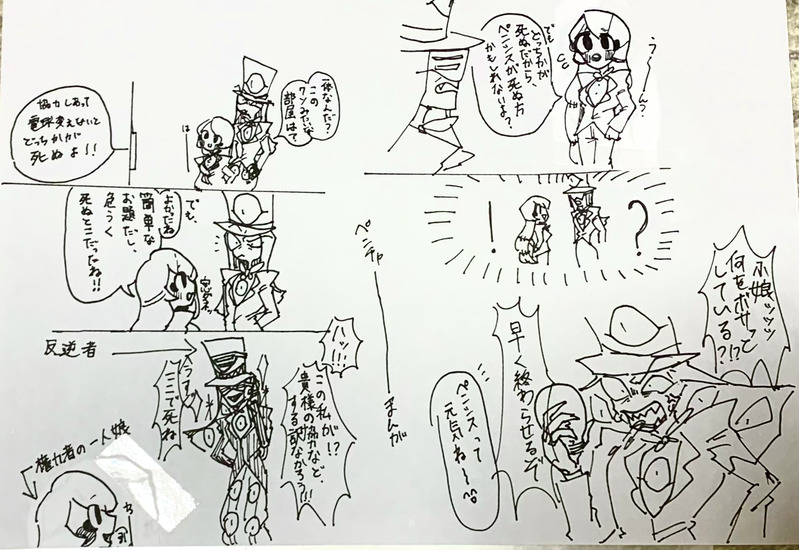 ペンチャ
まんが
一体なんだ?
この
クソみたいな
部屋は?
は
協力しあって
電球変えないと
どっちかが
死ぬよ!!
よかったね
簡単な
お題だし、
でも、
危うく
死ぬとこだったね!!
ハッ!!!
この私が!?
貴様の協力など、
する訳なかろう!!
ここで死ね
反逆者
権力者の一人娘
う〜〜ん?
でも
どっちかが
死ぬだから、
ペンシスが死ぬ方
かもしれないよ?
?
!
小娘ッッッ
何をボサッて
している?!?
早く終わらせるぞ
ペンシスって
元気ね〜